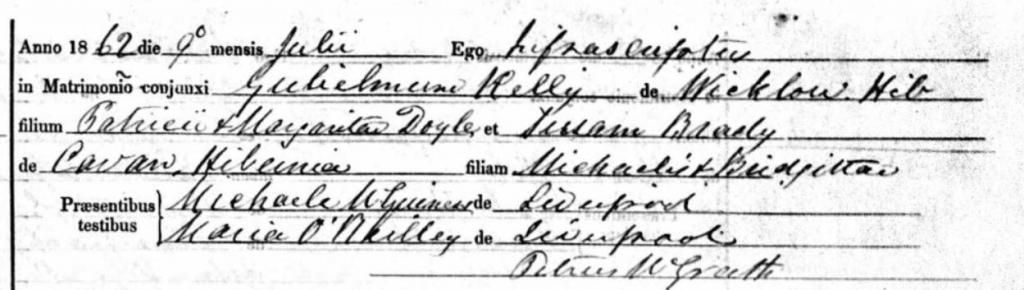 Anno 1862 die 9º mensis Julii Ego Infrascriptus
in Matrimoñio conjunxi Gulielmum Kelly de Wicklow Hib
filium Patricii & Margaritae Doyle et Brady
de Cavan, Hibernia filiam Michaelis & Bridgittae
Præsentibus testibus Michaele McGuiness de Liverpool
Maria O'Reilley de Liverpool
Petrus McGrath